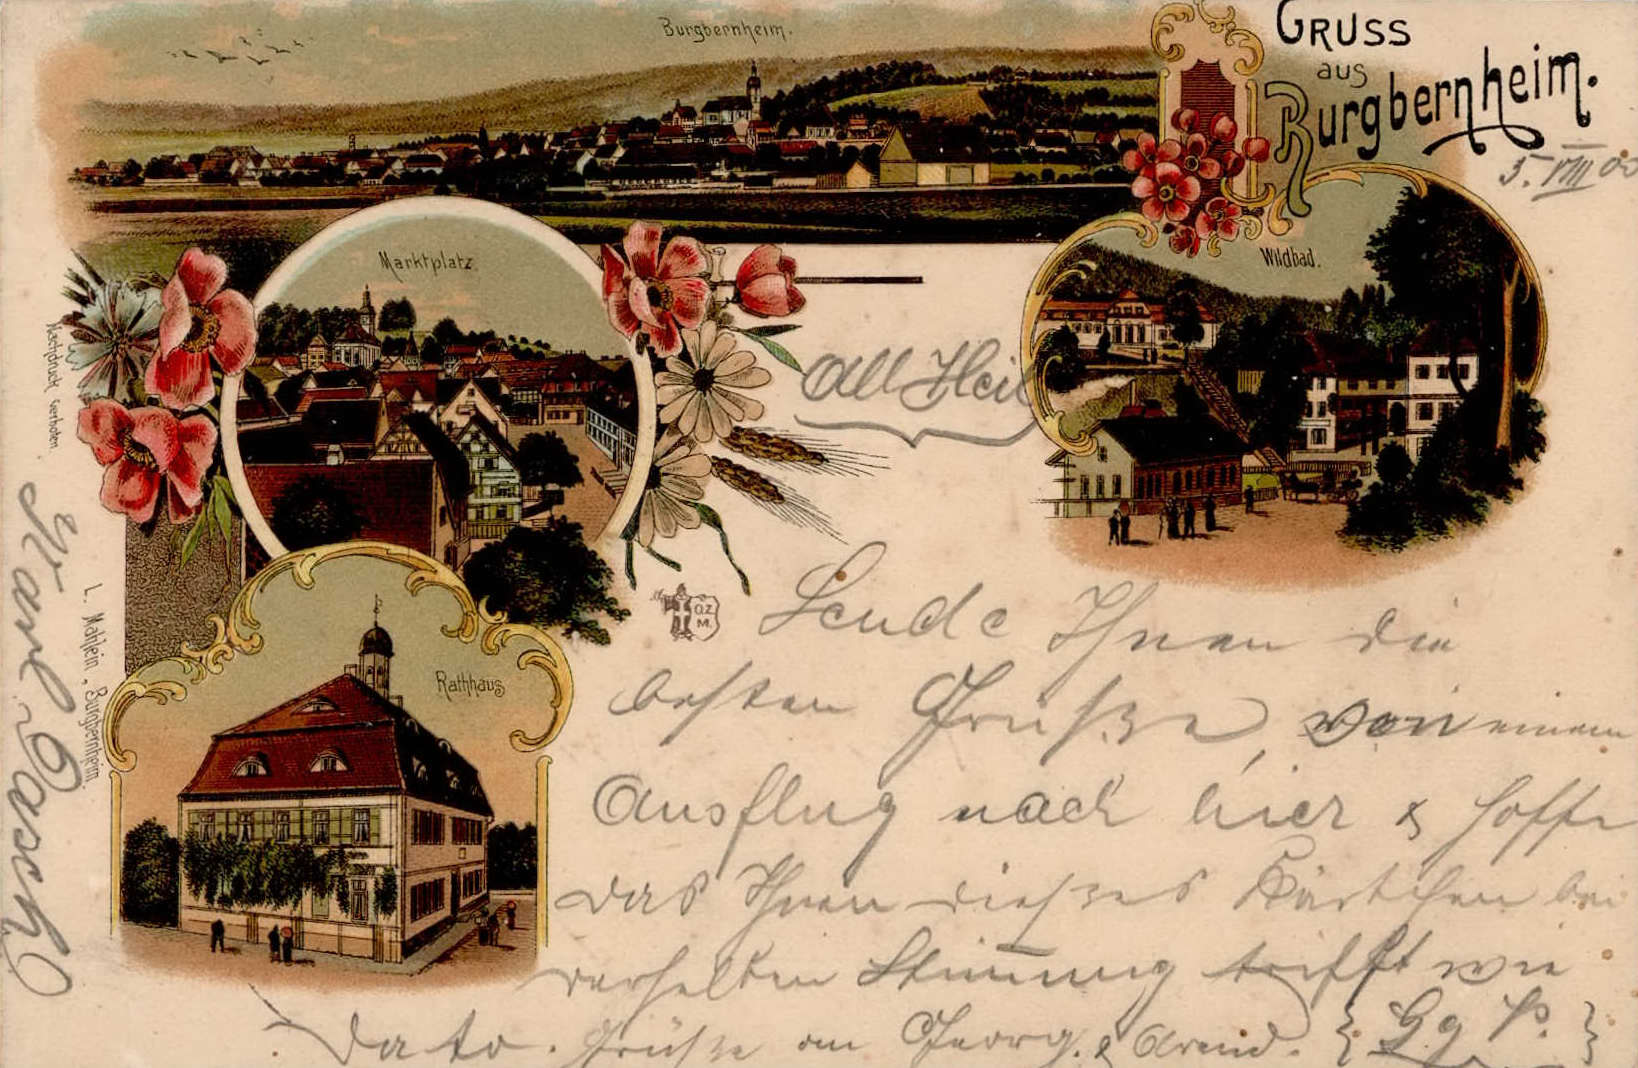 Burgbernheim.
GRUSS
aus
Burgbernheim.
5. VIII 00
Marktplatz.
Wildbad.
Nachdruck verboten.
All Heil
O.Z.
M.
L. Mahlein, Burgbernheim
Rathhaus
Sende Ihnen die
besten Grüße, von einem
Ausflug nach hier & hoffe
das Ihnen dießes Kärtchen bei
derselben Stimmung trifft wie
Dato. Grüße an Georg. &
Karl